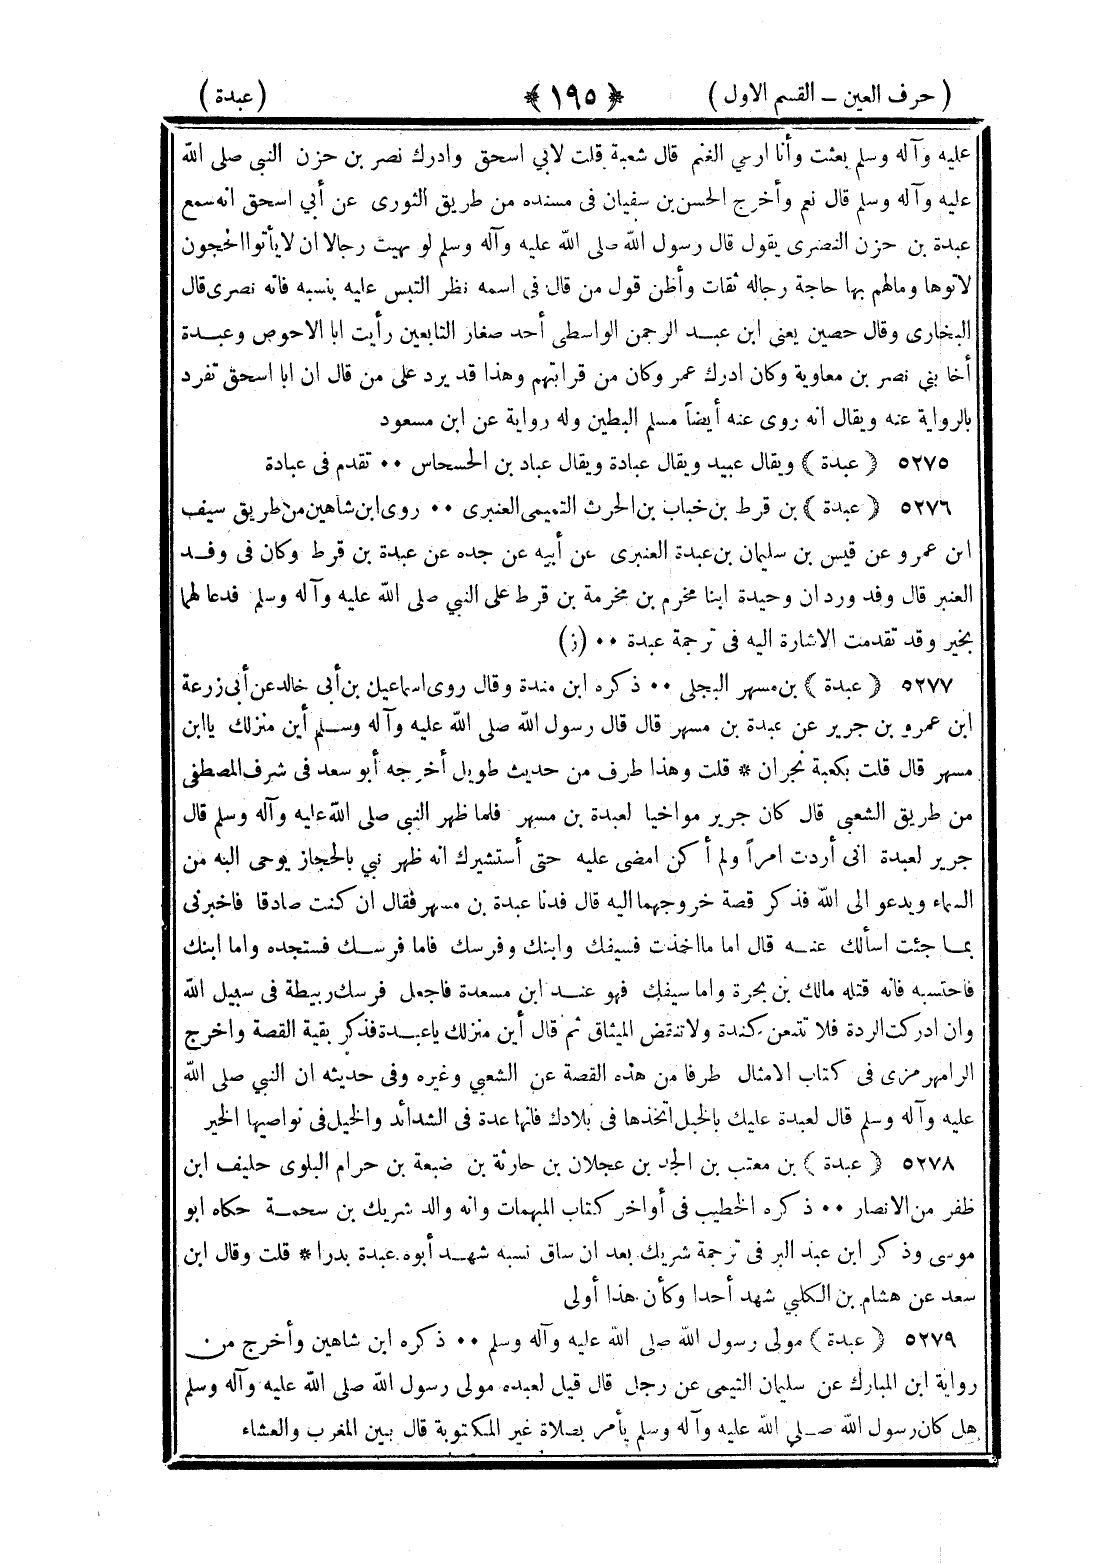 ( حرف العين ــ القسم الاول ) ﴿ ١٩٥ ﴾ ( عبدة )
عليه وآله وسلم بعثت وأنا ارسي الغنم قال شعبة قلت لابي اسحق وادرك نصر بن حزن النبي صلى الله
عليه وآله وسلم قال نعم وأخرج الحسن بن سفيان فى مسنده من طريق الثورى عن أبي اسحق انه سمع
عبدة بن حزن النصرى يقول قال رسول الله صلى الله عليه وآله وسلم لو نهيت رجالا ان لا يأتوا الحجون
لاتوها ومالهم بها حاجة رجاله ثقات وأظن قول من قال فى اسمه نظر التبس عليه بنسبه فانه نصرى قال
البخارى وقال حصين يعنى ابن عبد الرحمن الواسطى أحد صغار التابعين رأيت ابا الاحوص وعبدة
أخا بني نصر بن معاوية وكان ادرك عمر وكان من قرابتهم وهذا قد يرد على من قال ان ابا اسحق تفرد
بالرواية عنه ويقال انه روى عنه أيضاً مسلم البطين وله رواية عن ابن مسعود
٥٢٧٥ ﴿ عبدة ﴾ ويقال عبيد ويقال عبادة ويقال عباد بن الحسحاس ٠٠ تقدم فى عبادة
٥٢٧٦ ﴿ عبدة ﴾ بن قرط بن خباب بن الحرث التميمى العنبرى ٠٠ روى ابن شاهين من طريق سيف
ابن عمرو عن قيس بن سليمان بن عبدة العنبرى عن أبيه عن جده عن عبدة بن قرط وكان فى وفد
العنبر قال وفد وردان وحيدة ابنا مخرم بن مخرمة بن قرط على النبي صلى الله عليه وآله وسلم فدعا لهما
بخير وقد تقدمت الاشارة اليه فى ترجمة عبدة ٠٠ (ز)
٥٢٧٧ ﴿ عبدة ﴾ بن مسهر البجلى ٠٠ ذكره ابن مندة وقال روى اسماعيل بن أبي خالد عن أبى زرعة
ابن عمرو بن جرير عن عبدة بن مسهر قال قال رسول الله صلى الله عليه وآله وسلم أين منزلك يا ابن
مسهر قال قلت بكعبة نجران * قلت وهذا طرف من حديث طويل أخرجه أبو سعد فى شرف المصطفى
من طريق الشعبى قال كان جرير مواخيا لعبدة بن مسهر فلما ظهر النبى صلى الله عليه وآله وسلم قال
جرير لعبدة انى أردت امراً ولم أكن امضى عليه حتى أستشيرك انه ظهر نبي بالحجاز يوحى اليه من
السماء ويدعو الى الله فذكر قصة خروجهما اليه قال فدنا عبدة بن مسهر فقال ان كنت صادقا فاخبرنى
بما جئت اسألك عنه قال اما ما اخذت فسيفك وابنك وفرسك فاما فرسك فستجده واما ابنك
فاحتسبه فانه قتله مالك بن بحرة واما سيفك فهو عند ابن مسعدة فاجعل فرسك ربيطة فى سبيل الله
وان ادركت الردة فلا تتبعن كندة ولا تنقض الميثاق ثم قال أين منزلك يا عبدة فذكر بقية القصة واخرج
الرامهرمزى فى كتاب الامثال طرفا من هذه القصة عن الشعبي وغيره وفى حديثه ان النبي صلى الله
عليه وآله وسلم قال لعبدة عليك بالخيل اتخذها فى بلادك فانها عدة فى الشدائد والخيل فى نواصيها الخير
٥٢٧٨ ﴿ عبدة ﴾ بن معتب بن الجد بن عجلان بن حارثة بن ضبعة بن حرام البلوى حليف ابن
ظفر من الانصار ٠٠ ذكره الخطيب فى أواخر كتاب المبهمات وانه والد شريك بن سحمة حكاه ابو
موسى وذكر ابن عبد البر فى ترجمة شريك بعد ان ساق نسبه شهد أبوه عبدة بدرا * قلت وقال ابن
سعد عن هشام بن الكلبي شهد أحدا وكأن هذا أولى
٥٢٧٩ ﴿ عبدة ﴾ مولى رسول الله صلى الله عليه وآله وسلم ٠٠ ذكره ابن شاهين وأخرج من
رواية ابن المبارك عن سليمان التيمى عن رجل قال قيل لعبده مولى رسول الله صلى الله عليه وآله وسلم
هل كان رسول الله صلي الله عليه وآله وسلم يأمر بصلاة غير المكتوبة قال بين المغرب والعشاء